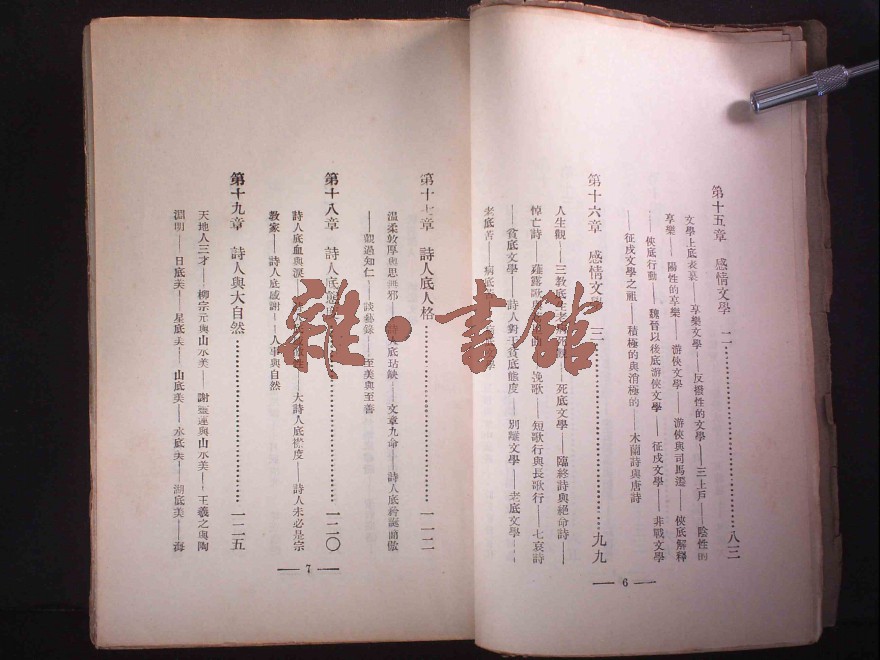 第十五章 感情文學 二…………八三
文學上底表裏——享樂文學——反撥性的文學——三上戶——陰性的
享樂——陽性的享樂——游俠文學——游俠與司馬遷——俠底解釋
——俠底行動——魏晉以後底游俠文學——征戍文學——非戰文學
——征戍文學之祖——積極的與消極的——木蘭詩與唐詩
第十六章 感情文學 三…………九九
人生觀——三教底生老病死觀——死底文學——臨終詩與絕命詩——
悼亡詩——薤露歌——挽歌——短歌行與長歌行——七哀詩
——貧底文學——詩人對于貧底態度——別離文學——老底文學——
老底苦——病底
6
第十七章 詩人底人格…………一一二
溫柔敦厚與思無邪——詩人底玷缺——文章九命——詩人底矜誕簡傲
——觀過知仁——談藝錄——至美與至善
第十八章 詩人底態度…………一二〇
詩人底血與淚——大詩人底襟度——詩人未必是宗
教家——詩人底感謝——人事與自然
第十九章 詩人與大自然…………一二五
天地人三才——柳宗元與山水美——謝靈運與山水美——王羲之與陶
淵明——日底美——星底美——山底美——水底美——湖底美——海
7
雜·書館